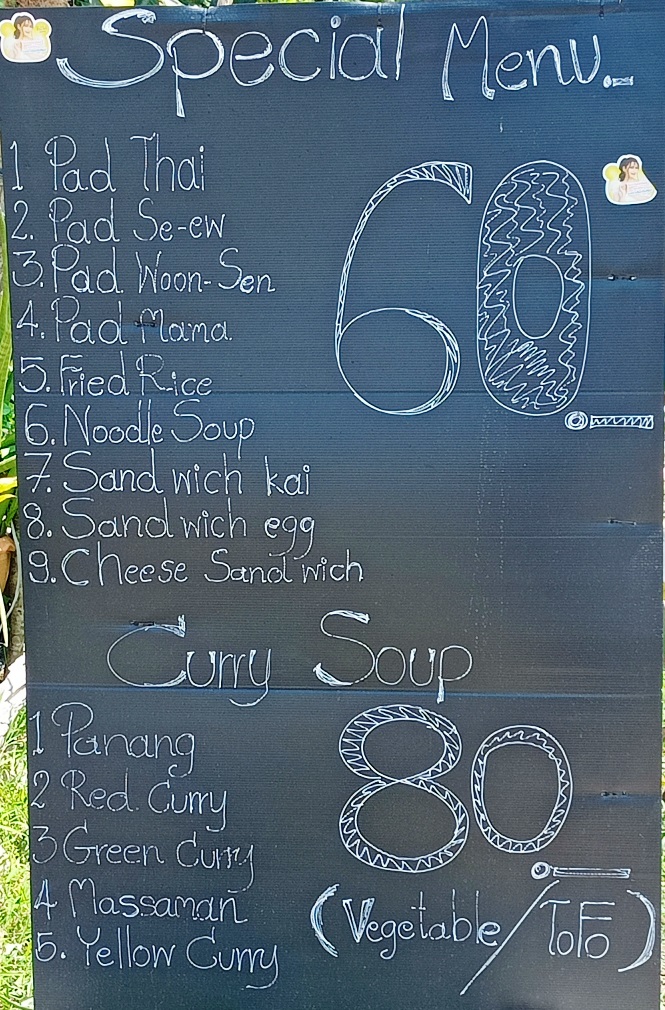 Special Menu.-
1 Pad Thai
2. Pad Se-ew
3. Pad Woon-Sen
4. Pad Mama
60.-
5. Fried Rice
6. Noodle Soup
7. Sandwich kai
8. Sandwich egg
9. Cheese Sandwich
Curry Soup
1 Panang
2 Red Curry
80.-
3 Green Curry
4 Massaman
(Vegetable/ToFo)
5. Yellow Curry